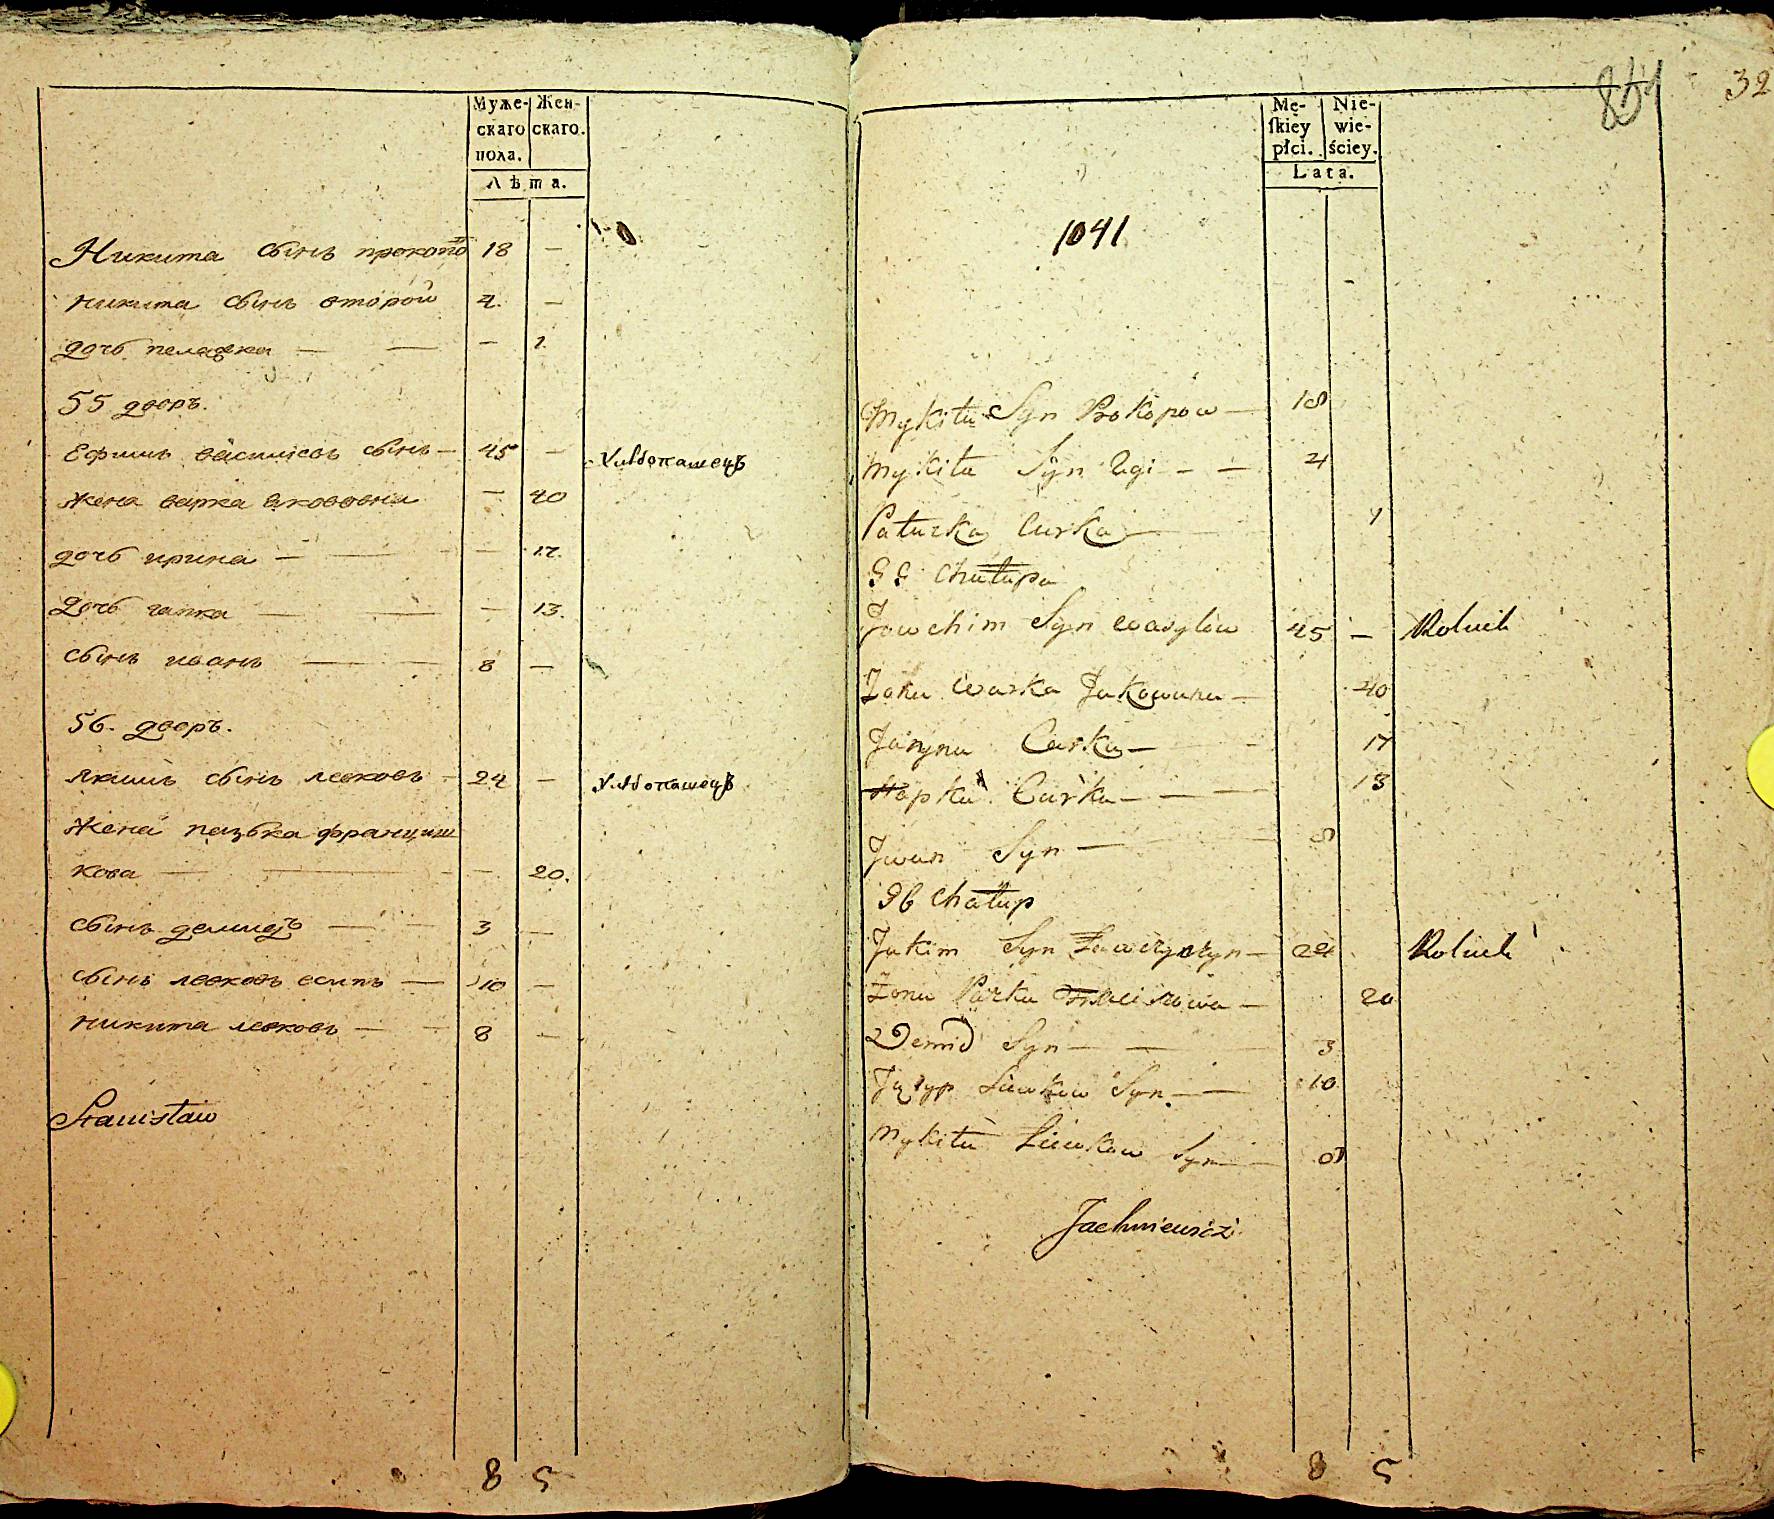 Муже-
скаго
пола.
Жен-
скаго.
Лѣта.
Никита сынъ прокопо 18 —
никита сынъ второй 4. —
дочь пелагека — — — 1
55 дворъ.
Ефимъ василіевъ сынъ — 45 — Хлѣбопашецъ
жена варка якововна — 40
дочь ирина — — — 17.
дочь гапка — — — 13.
сынъ иванъ — — 8 —
56. дворъ.
якимъ сынъ левковъ — 24 — Хлѣбопашецъ
Жена пазька францыш
кова — — — 20.
сынъ демидъ — — 3 —
сынъ левковъ есипъ — 10 —
никита левковъ — — 8 —
Stanisław
8 5
32
Mę-
ſkiey
płci.
Nie-
wie-
ściey.
Lata.
1041
Mykita Syn Prokopow — 18
Mykita Syn 2gi — — 4
Curka — 1
55 Chałupa
Jowchim Syn Wasylow 45 — Rolnik
Zona Warka Jakowowna — 40
Jaryna Curka — — 17
Hapka Curka — — — 13
Jwan Syn — — 8
56 Chałup
Jakim Syn — 24 Rolnik
Zona Pazka — 20
Demid Syn — — 3
Lewkow Syn — — 10
Mykita Lewkow Syn — 8
Jachniewicz
8 5